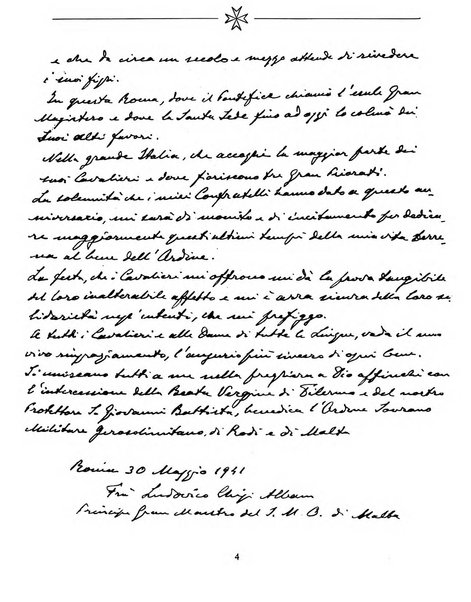 e che da circa un secolo e mezzo attende di rivedere
i suoi figli.
In questa Roma, dove il Pontefice chiamò l'esule Gran
Magistero e dove la Santa Sede fino ad oggi lo colmò dei
Suoi alti favori.
Nella grande Italia, che accoglie la maggior parte dei
suoi Cavalieri e dove fioriscono tre Gran Priorati.
La solennità che i miei Confratelli hanno dato a questo an-
niversario, mi sarà di monito e di incitamento per dedica-
re maggiormente questi ultimi tempi della mia vita terre-
na al bene dell'Ordine.
La festa, che i Cavalieri mi offrono mi dà la prova tangibile
del loro inalterabile affetto e mi è arra sicura della loro so-
lidarietà negl'intenti, che mi prefiggo.
A tutti i Cavalieri e alle Dame di tutte le Lingue, vada il mio
vivo ringraziamento, l'augurio più sincero di ogni bene.
Si uniscano tutti a me nella preghiera a Dio affinché con
l'intercessione della Beata Vergine di Filermo e del nostro
Protettore S. Giovanni Battista, benedica l'Ordine Sovrano
Militare Gerosolimitano, di Rodi e di Malta
Roma 30 Maggio 1941
Frà Ludovico Chigi Albani
Principe Gran Maestro del S. M. O. di Malta
4